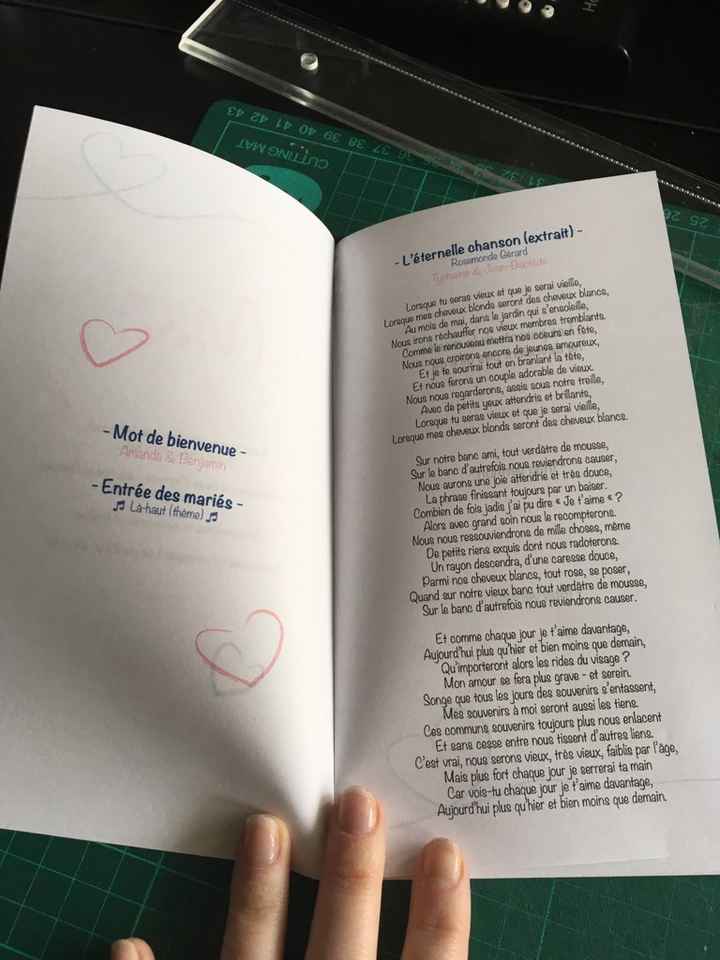 43 42 41 40 39 38 37 36 35
32 31:
26 25
CUTTING MAT
- Mot de bienvenue -
Amanda & Benjamin
- Entrée des mariés -
♫ Là-haut (thème) ♫
- L'éternelle chanson (extrait) -
Rosemonde Gérard
Typhaine & Jean-Baptiste
Lorsque tu seras vieux et que je serai vieille,
Lorsque mes cheveux blonds seront des cheveux blancs,
Au mois de mai, dans le jardin qui s'ensoleille,
Nous irons réchauffer nos vieux membres tremblants.
Comme le renouveau mettra nos coeurs en fête,
Nous nous croirons encore de jeunes amoureux,
Et je te sourirai tout en branlant la tête,
Et nous ferons un couple adorable de vieux.
Nous nous regarderons, assis sous notre treille,
Avec de petits yeux attendris et brillants,
Lorsque tu seras vieux et que je serai vieille,
Lorsque mes cheveux blonds seront des cheveux blancs.
Sur notre banc ami, tout verdâtre de mousse,
Sur le banc d'autrefois nous reviendrons causer,
Nous aurons une joie attendrie et très douce,
La phrase finissant toujours par un baiser.
Combien de fois jadis j'ai pu dire « Je t'aime « ?
Alors avec grand soin nous le recompterons.
Nous nous ressouviendrons de mille choses, même
De petits riens exquis dont nous radoterons.
Un rayon descendra, d'une caresse douce,
Parmi nos cheveux blancs, tout rose, se poser,
Quand sur notre vieux banc tout verdâtre de mousse,
Sur le banc d'autrefois nous reviendrons causer.
Et comme chaque jour je t'aime davantage,
Aujourd'hui plus qu'hier et bien moins que demain,
Qu'importeront alors les rides du visage ?
Mon amour se fera plus grave - et serein.
Songe que tous les jours des souvenirs s'entassent,
Mes souvenirs à moi seront aussi les tiens.
Ces communs souvenirs toujours plus nous enlacent
Et sans cesse entre nous tissent d'autres liens.
C'est vrai, nous serons vieux, très vieux, faiblis par l'âge,
Mais plus fort chaque jour je serrerai ta main
Car vois-tu chaque jour je t'aime davantage,
Aujourd'hui plus qu'hier et bien moins que demain.